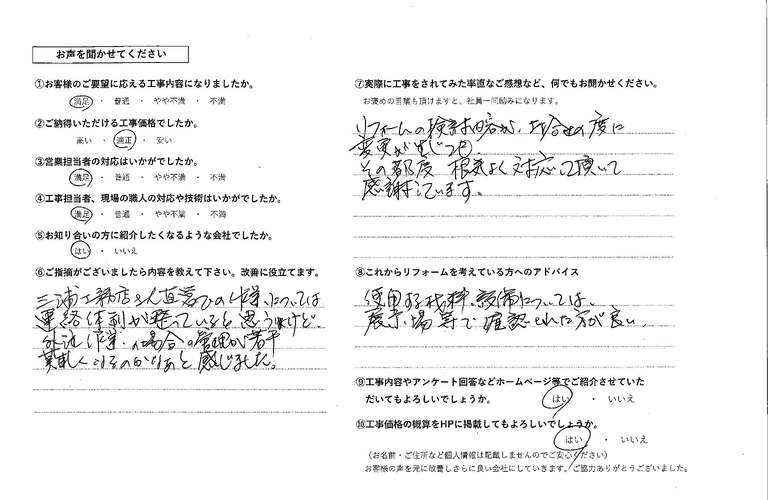 お声を聞かせてください
①お客様のご要望に応える工事内容になりましたか。
満足 ・ 普通 ・ やや不満 ・ 不満
②ご納得いただける工事価格でしたか。
高い ・ 適正 ・ 安い
③営業担当者の対応はいかがでしたか。
満足 ・ 普通 ・ やや不満 ・ 不満
④工事担当者、現場の職人の対応や技術はいかがでしたか。
満足 ・ 普通 ・ やや不満 ・ 不満
⑤お知り合いの方に紹介したくなるような会社でしたか。
はい ・ いいえ
⑥ご指摘がございましたら内容を教えて下さい。改善に役立てます。
三浦工務店さん直営の作業については
連絡体制が整っていると思うけど、
外注作業の場合の管理が若干
難しくなるのかなあと感じました。
⑦実際に工事をされてみた率直なご感想など、何でもお聞かせください。
お褒めの言葉も頂けますと、社員一同励みになります。
リフォームの検討内容が、打合せの度に
変更が生じても、
その都度 根気よく対応して頂いて
感謝しています。
⑧これからリフォームを考えている方へのアドバイス
使用する材料・設備については、
展示場等で確認された方が良い。
⑨工事内容やアンケート回答などホームページ等でご紹介させていた
だいてもよろしいでしょうか。 はい ・ いいえ
⑩工事価格の概算をHPに掲載してもよろしいでしょうか。
はい ・ いいえ
（お名前・ご住所など個人情報は記載しませんのでご安心ください）
お客様の声を元に改善しさらに良い会社にしていきます。ご協力ありがとうございました。